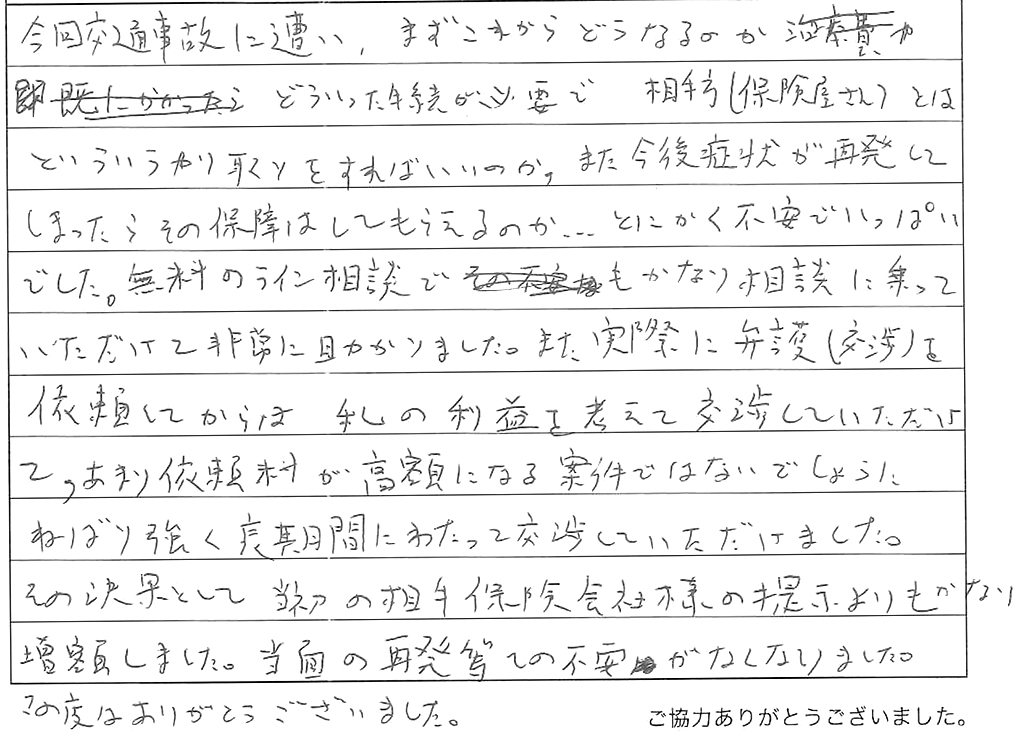 今回交通事故に遭い、まずこれからどうなるのか治療費、や
即既にかかったら どういった手続が必要で 相手(保険屋さん)とは
どういうやり取りをすればいいのか。また今後症状が再発して
しまったらその保障はしてもらえるのか… とにかく不安でいっぱい
でした。無料のライン相談で その不安 もかなり相談に乗って
いただけて非常に助かりました。また実際に弁護(交渉)を
依頼してからは 私の利益を考えて交渉していただけ
て、あまり依頼料が高額になる案件ではないでしょうに
ねばり強く長期間にわたって交渉していただけました。
その決果として 当初の相手保険会社様の提示よりもかなり
増額しました。当面の再発等での不安 がなくなりました。
この度はありがとうございました。
ご協力ありがとうございました。